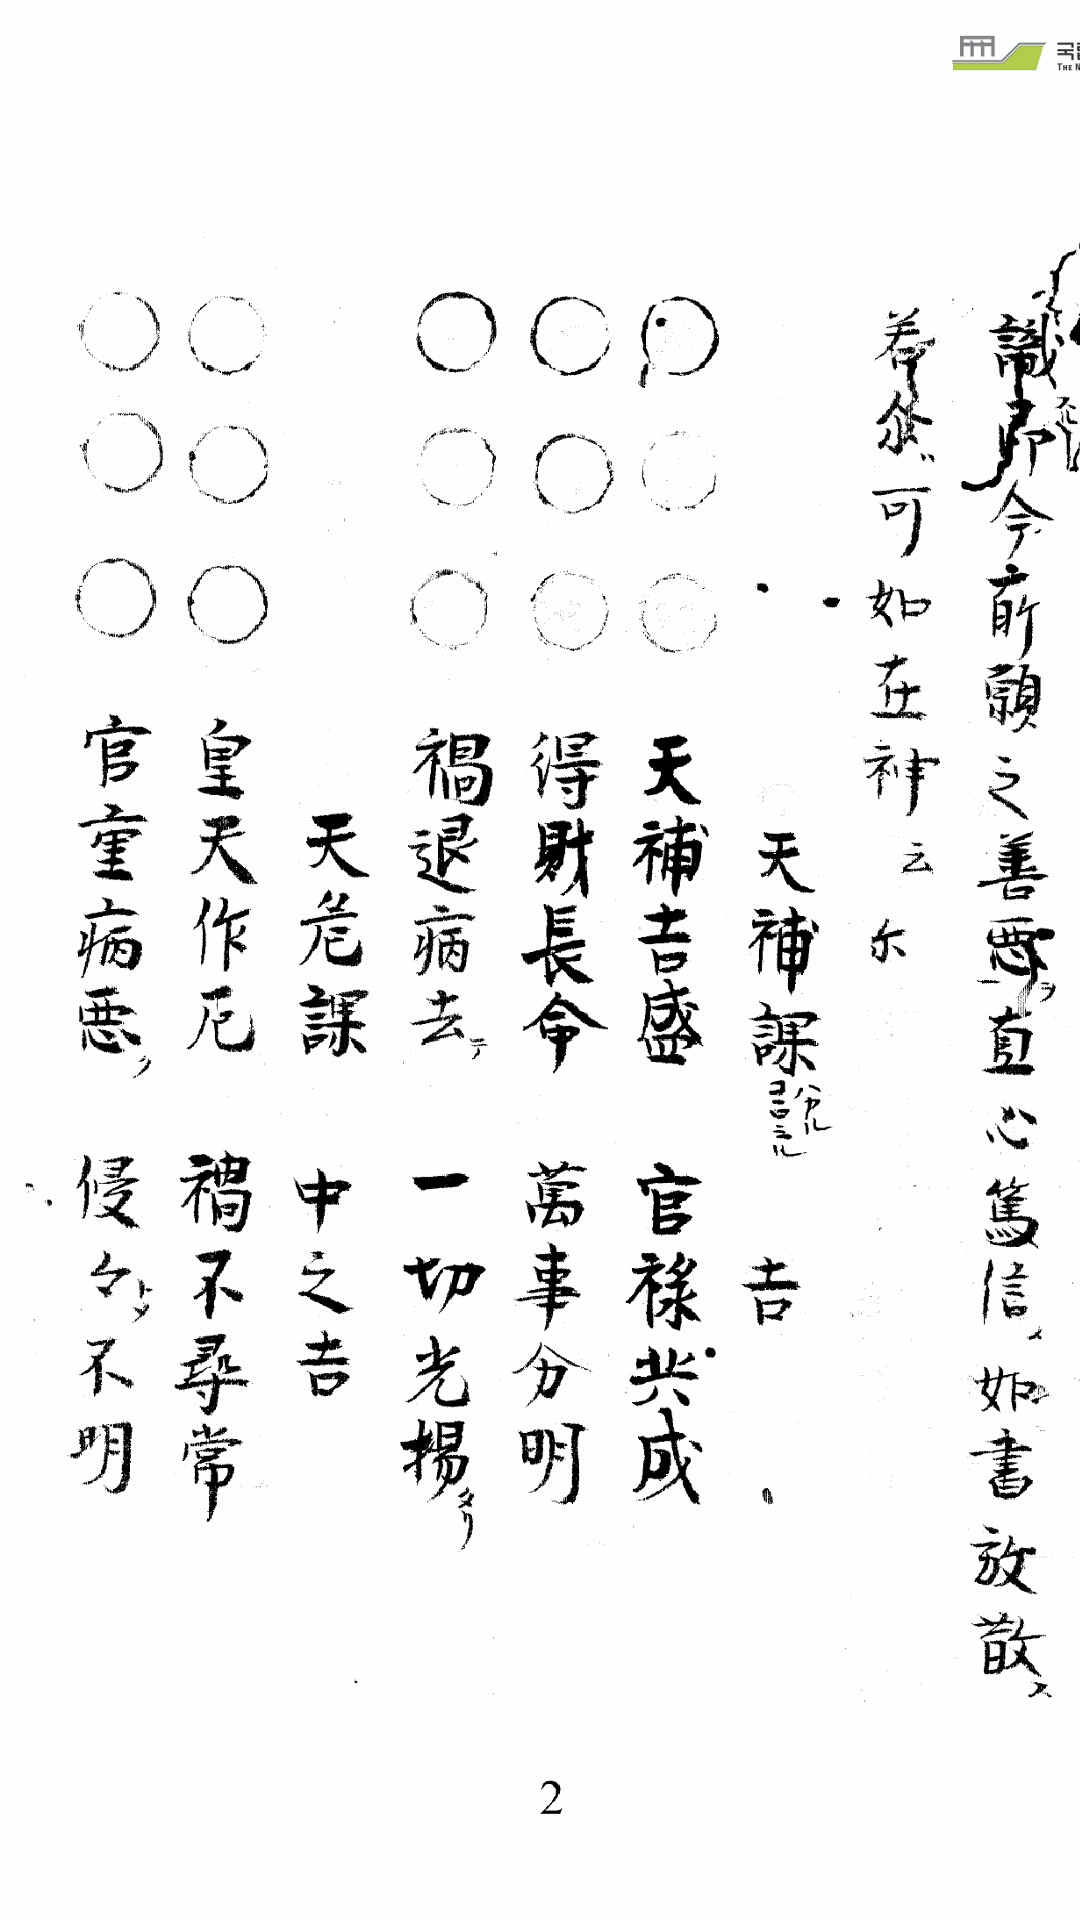 識即今所願之善悪ヲ直心篤信メ如書放散ス
若然ハ可如在神云尓
天補課 吉
天補吉盛 官祿共成
得財長命 萬事分明
禍退病去テ 一切光揚タリ
天危課 中之吉
皇天作厄 禍不尋常
官重病悪ク 侵々トメ不明
2